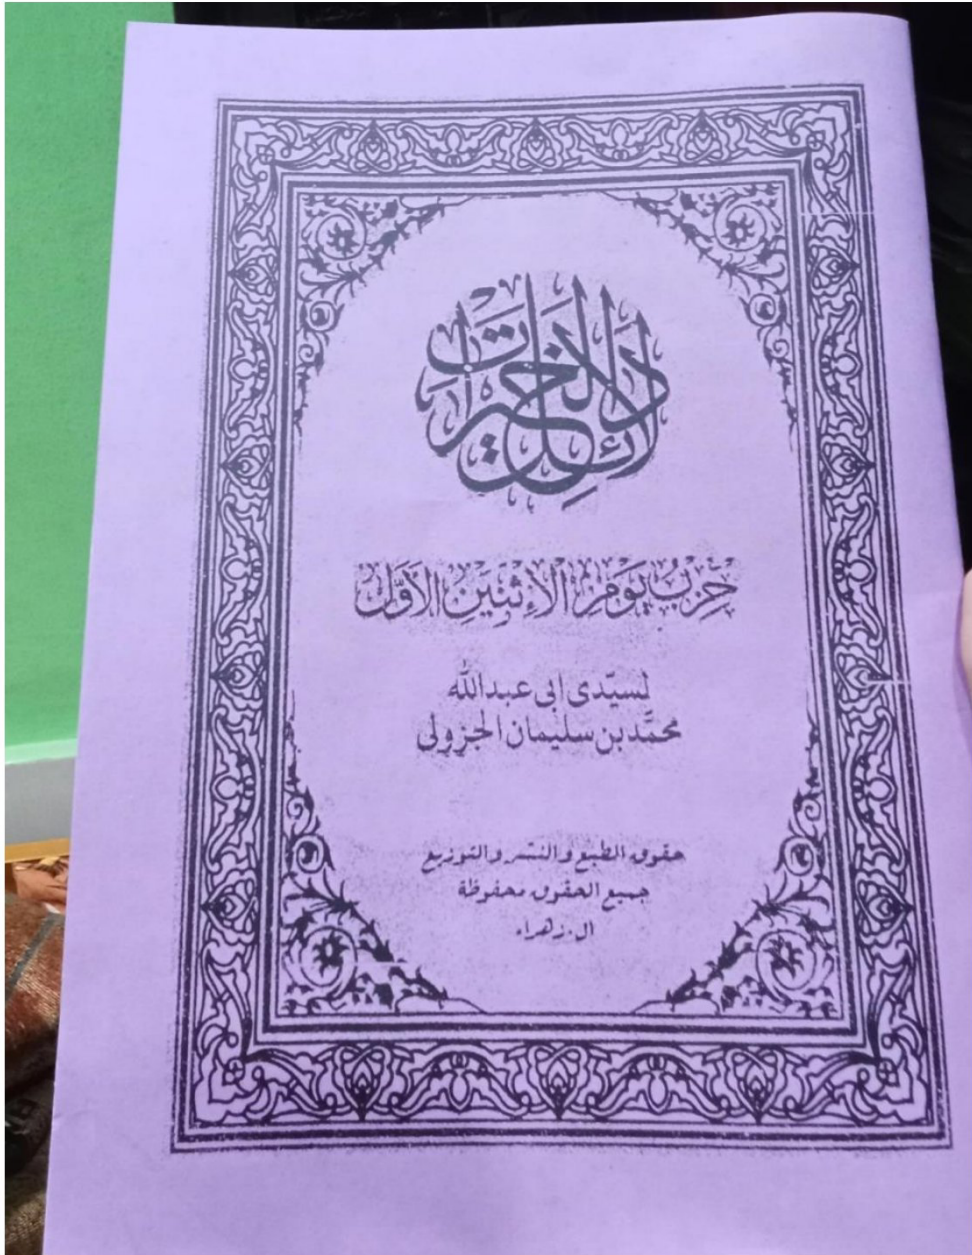 دلائل الخيرات
حِزْبُ يَوْمِ الْاِثْنَيْنِ الْاَوَّلِ
لسيّدى ابى عبدالله
محمَّد بن سليمان الجزولى
حقوق الطبع والنشر والتوزيع
جميع الحقوق محفوظة
ال.زهراء